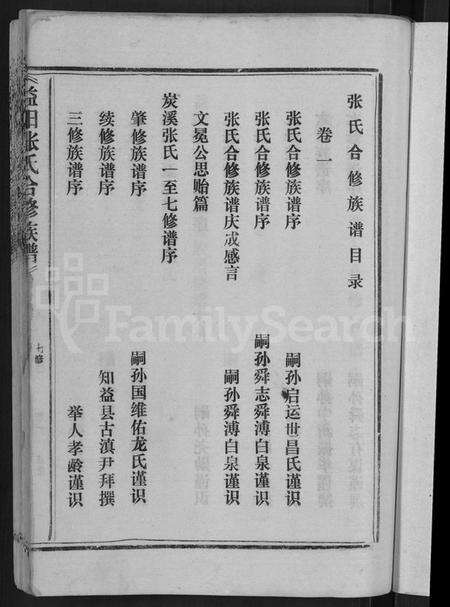 张氏合修族谱目录
卷一
张氏合修族谱序 嗣孙启运世昌氏谨识
张氏合修族谱序 嗣孙舜志舜溥白泉谨识
张氏合修族谱庆成感言 嗣孙舜溥白泉谨识
文冕公思贻篇
炭溪张氏一至七修谱序
肇修族谱序 嗣孙国维佑龙氏谨识
续修族谱序 知益县古滇尹拜撰
三修族谱序 举人孝龄谨识
益阳张氏合修族谱
七修
FamilySearch